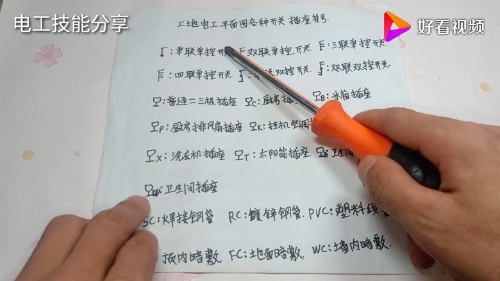 电工技能分享
好看视频
工地电工平面图各种开关 插座符号
单联单控开关 双联单控开关 三联单控开关
四联单控开关 双控开关 双联双控开关
普通二三极插座 C: 厨房 B: 冰箱插座
P: 厨房排风扇插座 K: 挂机空调
X: 洗衣机插座 T: 太阳能插座 卫生间
卫生间插座
SC: 焊接钢管 RC: 镀锌钢管 PVC: 塑料线管
板内暗敷 FC: 地面暗敷 WC: 墙内暗敷